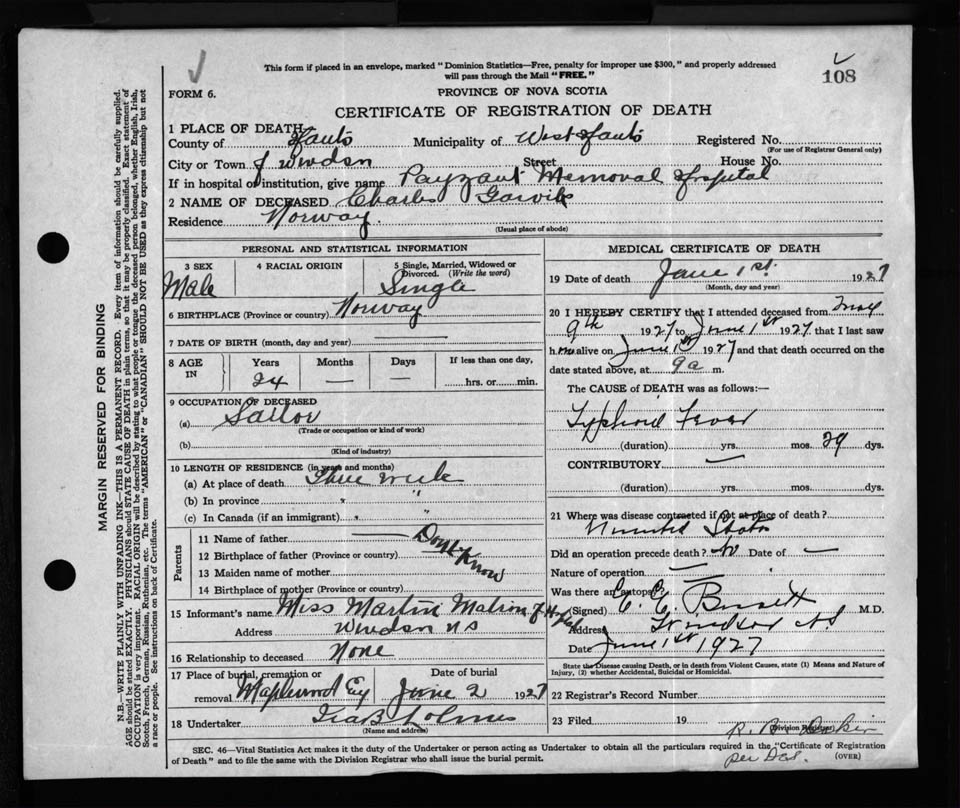 This form if placed in an envelope, marked "Dominion Statistics—Free, penalty for improper use $300," and properly addressed
will pass through the Mail "FREE."
108
FORM 6.
PROVINCE OF NOVA SCOTIA
CERTIFICATE OF REGISTRATION OF DEATH
MARGIN RESERVED FOR BINDING
N.B.—WRITE PLAINLY WITH UNFADING INK—THIS IS A PERMANENT RECORD. Every item of information should be carefully supplied.
AGE should be stated EXACTLY. PHYSICIANS should STATE CAUSE OF DEATH in plain terms, so that it may be properly classified. Exact statement of
OCCUPATION is very important. RACIAL ORIGIN will be described by stating to what people or tongue the deceased person belonged, whether English, Irish,
Scotch, French, German, Russian, Ruthenian, etc. The terms "AMERICAN" or "CANADIAN" SHOULD NOT BE USED as they express citizenship but not
a race or people. See instructions on back of Certificate.
1 PLACE OF DEATH
County of Hants Municipality of West Hants Registered No.
(For use of Registrar General only)
City or Town Windsor Street House No.
If in hospital or institution, give name Payzant Memorial Hospital
2 NAME OF DECEASED Charles
Residence Norway
(Usual place of abode)
PERSONAL AND STATISTICAL INFORMATION
3 SEX
Male
4 RACIAL ORIGIN
5 Single, Married, Widowed or
Divorced. (Write the word)
Single
6 BIRTHPLACE (Province or country) Norway
7 DATE OF BIRTH (month, day and year) —
8 AGE IN
Years
24
Months
—
Days
—
If less than one day,
hrs. or min.
9 OCCUPATION OF DECEASED
(a) Sailor
(Trade or occupation or kind of work)
(b)
(Kind of industry)
10 LENGTH OF RESIDENCE (in years and months)
(a) At place of death Three weeks
(b) In province " "
(c) In Canada (if an immigrant) " "
Parents
11 Name of father — Don't Know
12 Birthplace of father (Province or country)
13 Maiden name of mother
14 Birthplace of mother (Province or country)
15 Informant's name Miss Martin Matron of Hospital
Address Windsor NS
16 Relationship to deceased None
17 Place of burial, cremation or
removal Maplewood Cy
Date of burial
June 2 1927
18 Undertaker Holmes
(Name and address)
MEDICAL CERTIFICATE OF DEATH
19 Date of death June 1st 1927
(Month, day and year)
20 I HEREBY CERTIFY that I attended deceased from May
9th 1927 to June 1st 1927 that I last saw
him alive on June 1st 1927 and that death occurred on the
date stated above, at 9 a m.
The CAUSE of DEATH was as follows:—
Typhoid Fever
(duration) yrs. mos. 29 dys.
CONTRIBUTORY —
(duration) yrs. mos. dys.
21 Where was disease contracted if not at place of death?
United States
Did an operation precede death? No Date of —
Nature of operation —
Was there an autopsy? —
(Signed) M.D.
Address Windsor NS
Date June 1st 1927
State the Disease causing Death, or in death from Violent Causes, state (1) Means and Nature of
Injury, (2) whether Accidental, Suicidal or Homicidal.
22 Registrar's Record Number
23 Filed 19
(Division Registrar)
SEC. 46—Vital Statistics Act makes it the duty of the Undertaker or person acting as Undertaker to obtain all the particulars required in the "Certificate of Registration
of Death" and to file the same with the Division Registrar who shall issue the burial permit.
(OVER)